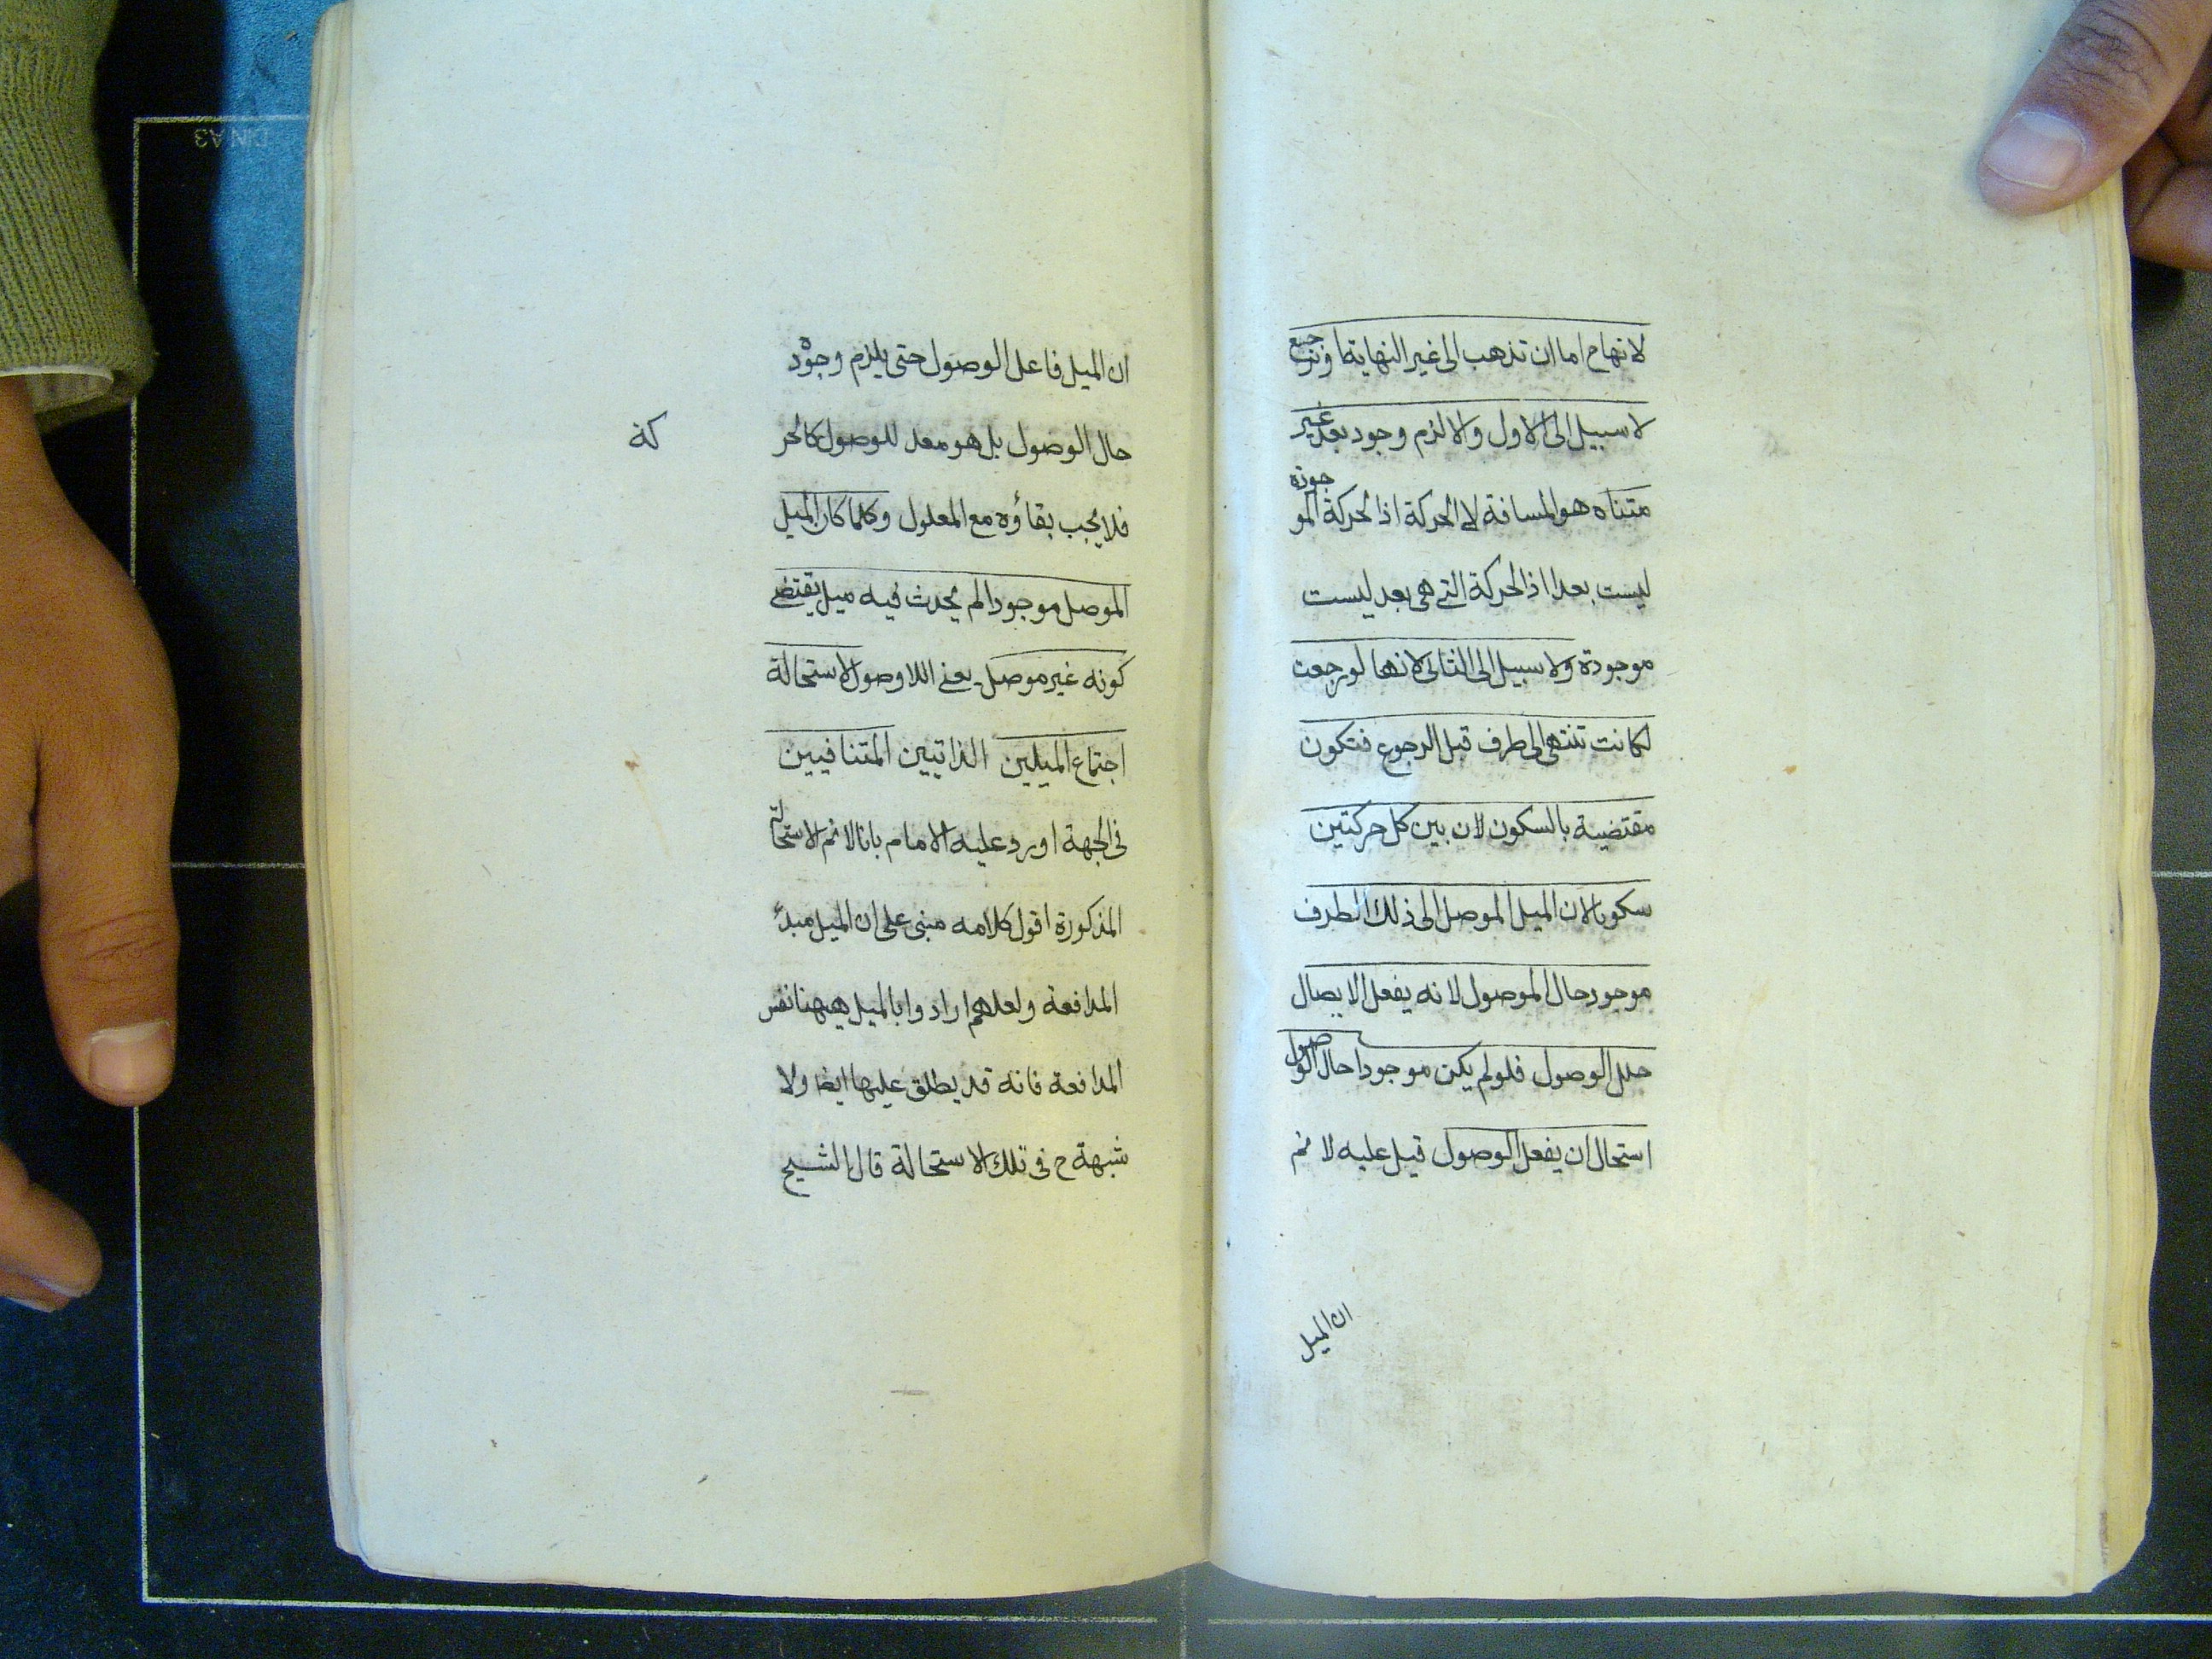 لانهاح اما ان تذهب الى غير النهاية او ترجع
لا سبيل الى الاول والا لزم وجود بعد غير
متناه هو المسافة لا الحركة اذ الحركة الموجودة
ليست بعدا اذ الحركة التي هي بعد ليست
موجودة ولا سبيل الى الثاني لانها لو رجعت
لكانت تنتهي الى طرف قبل الرجوع فتكون
مقتضية بالسكون لان بين كل حركتين
سكونا لان الميل الموصل الى ذلك الطرف
موجود حال الموصول لانه يفعل الايصال
حال الوصول فلو لم يكن موجودا حال الوصول
استحال ان يفعل الوصول قيل عليه لا نم
ان الميل
ان الميل فاعل الوصول حتى يلزم وجوده
حال الوصول بل هو معد للوصول كالحركة
فلا يجب بقاؤه مع المعلول وكلما كان الميل
الموصل موجودا لم يحدث فيه ميل يقتضي
كونه غير موصل يعني اللاوصول لاستحالة
اجتماع الميلين الذاتيين المتنافيين
في الجهة اورد عليه الامام بانا لا نم الاستحالة
المذكورة اقول كلامه مبني على ان الميل مبدء
المدافعة ولعلهم ارادوا بالميل ههنا نفس
المدافعة فانه قد يطلق عليها ايضا ولا
شبهة ح في تلك الاستحالة قال الشيخ